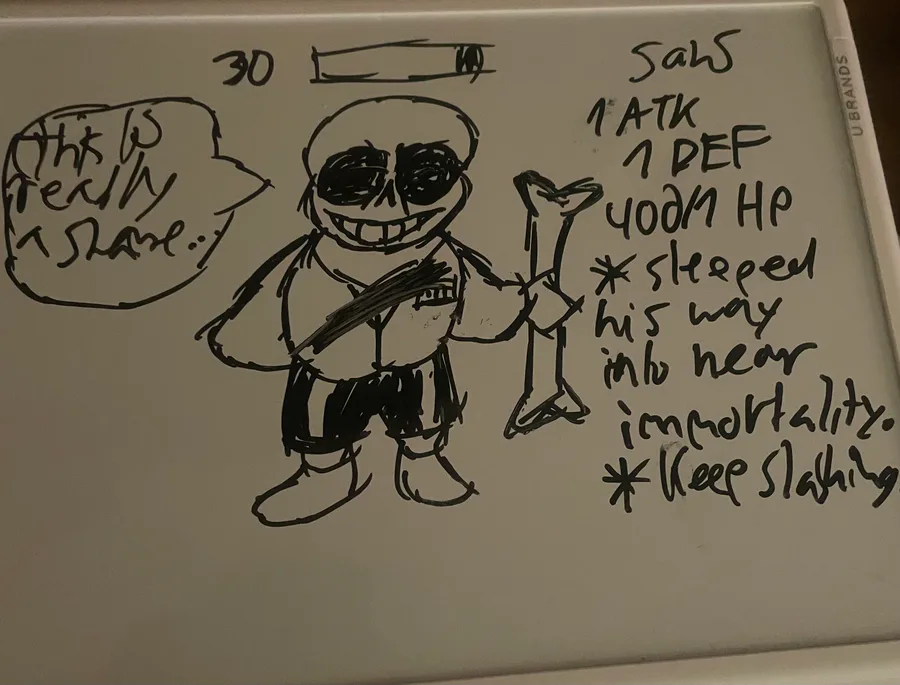 30
this is
really
a shame..
sans
1 ATK
1 DEF
400M HP
* sleeped
his way
into near
immortality.
* Keep slashing
U BRANDS